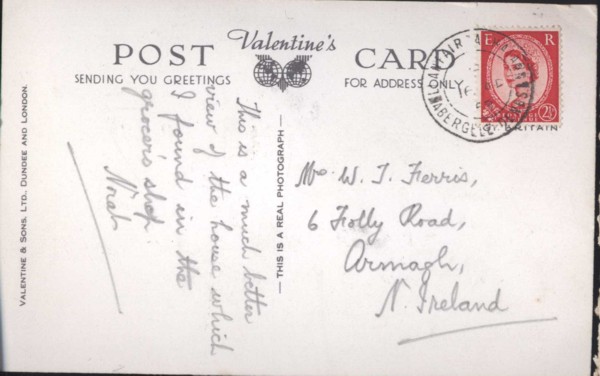 POST Valentine's CARD
SENDING YOU GREETINGS FOR ADDRESS ONLY
This is a much better
view of the house which
I found in the
grocer's shop.
Norah
VALENTINE & SONS, LTD., DUNDEE AND LONDON.
— THIS IS A REAL PHOTOGRAPH —
W. J. Ferris,
6 Folly Road,
Armagh,
N. Ireland
E R
2½
ABERGELE
BRITAIN